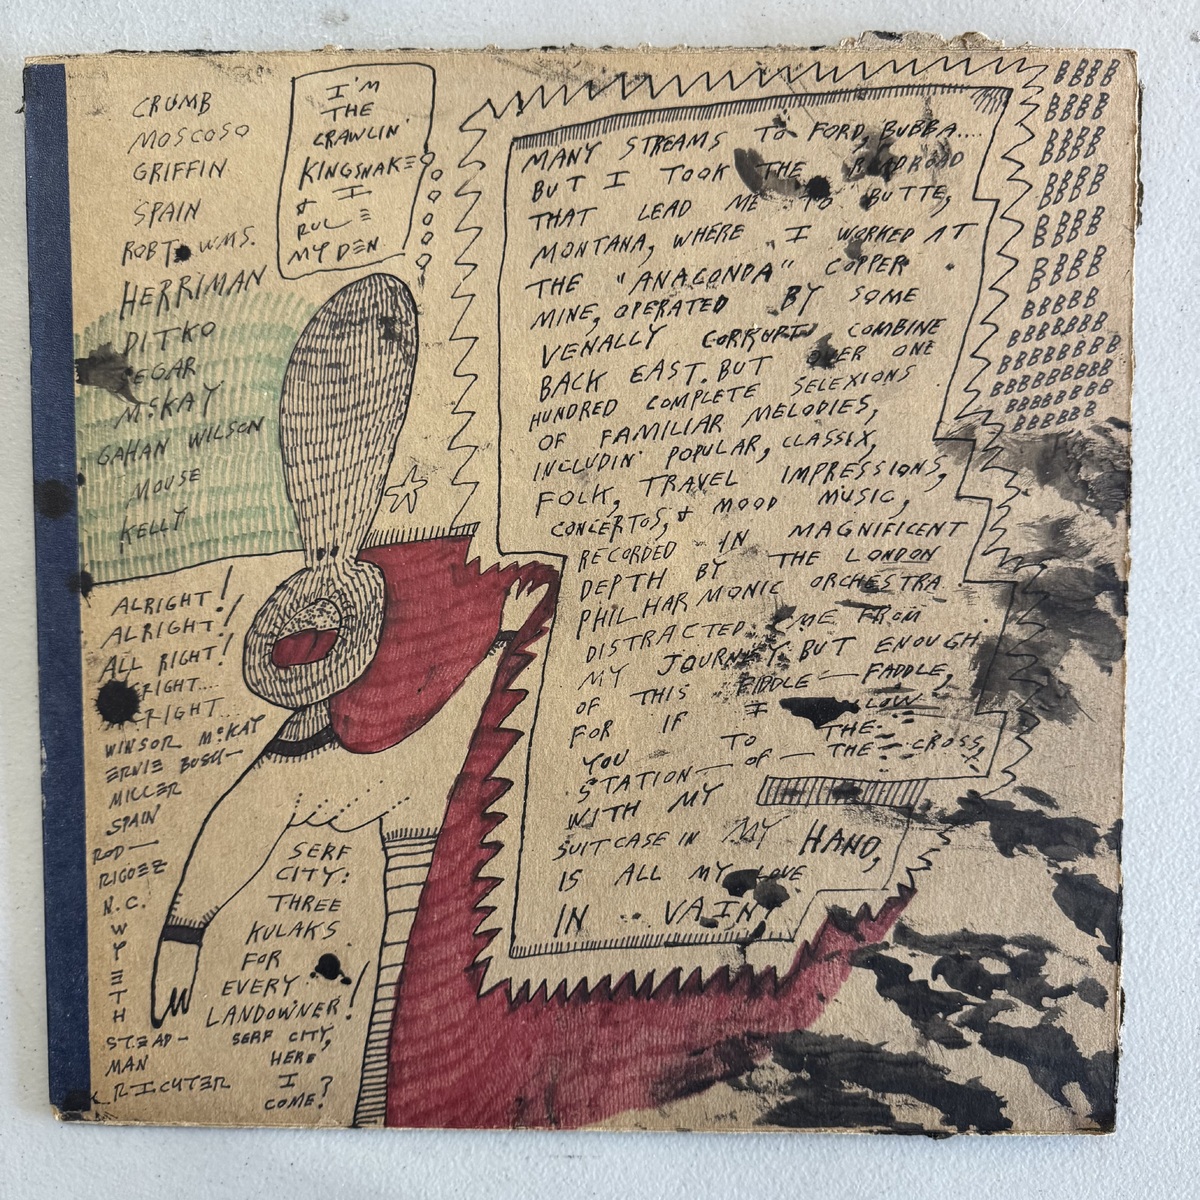 CRUMB
MOSCOSO
GRIFFIN
SPAIN
ROBT. WMS.
HERRIMAN
DITKO
SEGAR
MSKAY
GAHAN WILSON
MOUSE
KELLY
I'M
THE
CRAWLIN'
KINGSNAKE
I
& RULE
MY DEN.
MANY STREAMS TO FORD, BUBBA....
BUT I TOOK THE RAILROAD
THAT LEAD ME TO BUTTE,
MONTANA, WHERE I WORKED AT
THE "ANACONDA" COPPER
MINE, OPERATED BY SOME
VENALLY CORRUPT COMBINE
BACK EAST. BUT OVER ONE
HUNDRED COMPLETE SELEXIONS
OF FAMILIAR MELODIES,
INCLUDIN' POPULAR, CLASSIX,
FOLK, TRAVEL IMPRESSIONS,
CONCERTOS, & MOOD MUSIC,
RECORDED IN MAGNIFICENT
DEPTH BY THE LONDON
PHILHARMONIC ORCHESTRA
DISTRACTED ME FROM
MY JOURNEY. BUT ENOUGH
OF THIS FIDDLE-FADDLE,
FOR IF I
YOU TO THE
STATION-OF-THE-CROSS,
WITH MY
SUITCASE IN MY HAND,
IS ALL MY LOVE
IN VAIN?
BBBB
BBBB
BBBB
BBBB
BBBB
BBBB
BBBBB
BBBBBBB
BBBBBBBB
BBBBBBBBB
BBBBBBB
BBBBBB
ALRIGHT!
ALRIGHT!
ALL RIGHT!
RIGHT....
RIGHT...
WINSOR McKAY
ERNIE BUSH-
MILLER
SPAIN
ROD-
RIGUEZ
N.C.
W
Y
E
T
H
STEAD-
MAN
RICHTER
SERF
CITY:
THREE
KULAKS
FOR
EVERY
LANDOWNER!
SERF CITY,
HERE
I
COME?